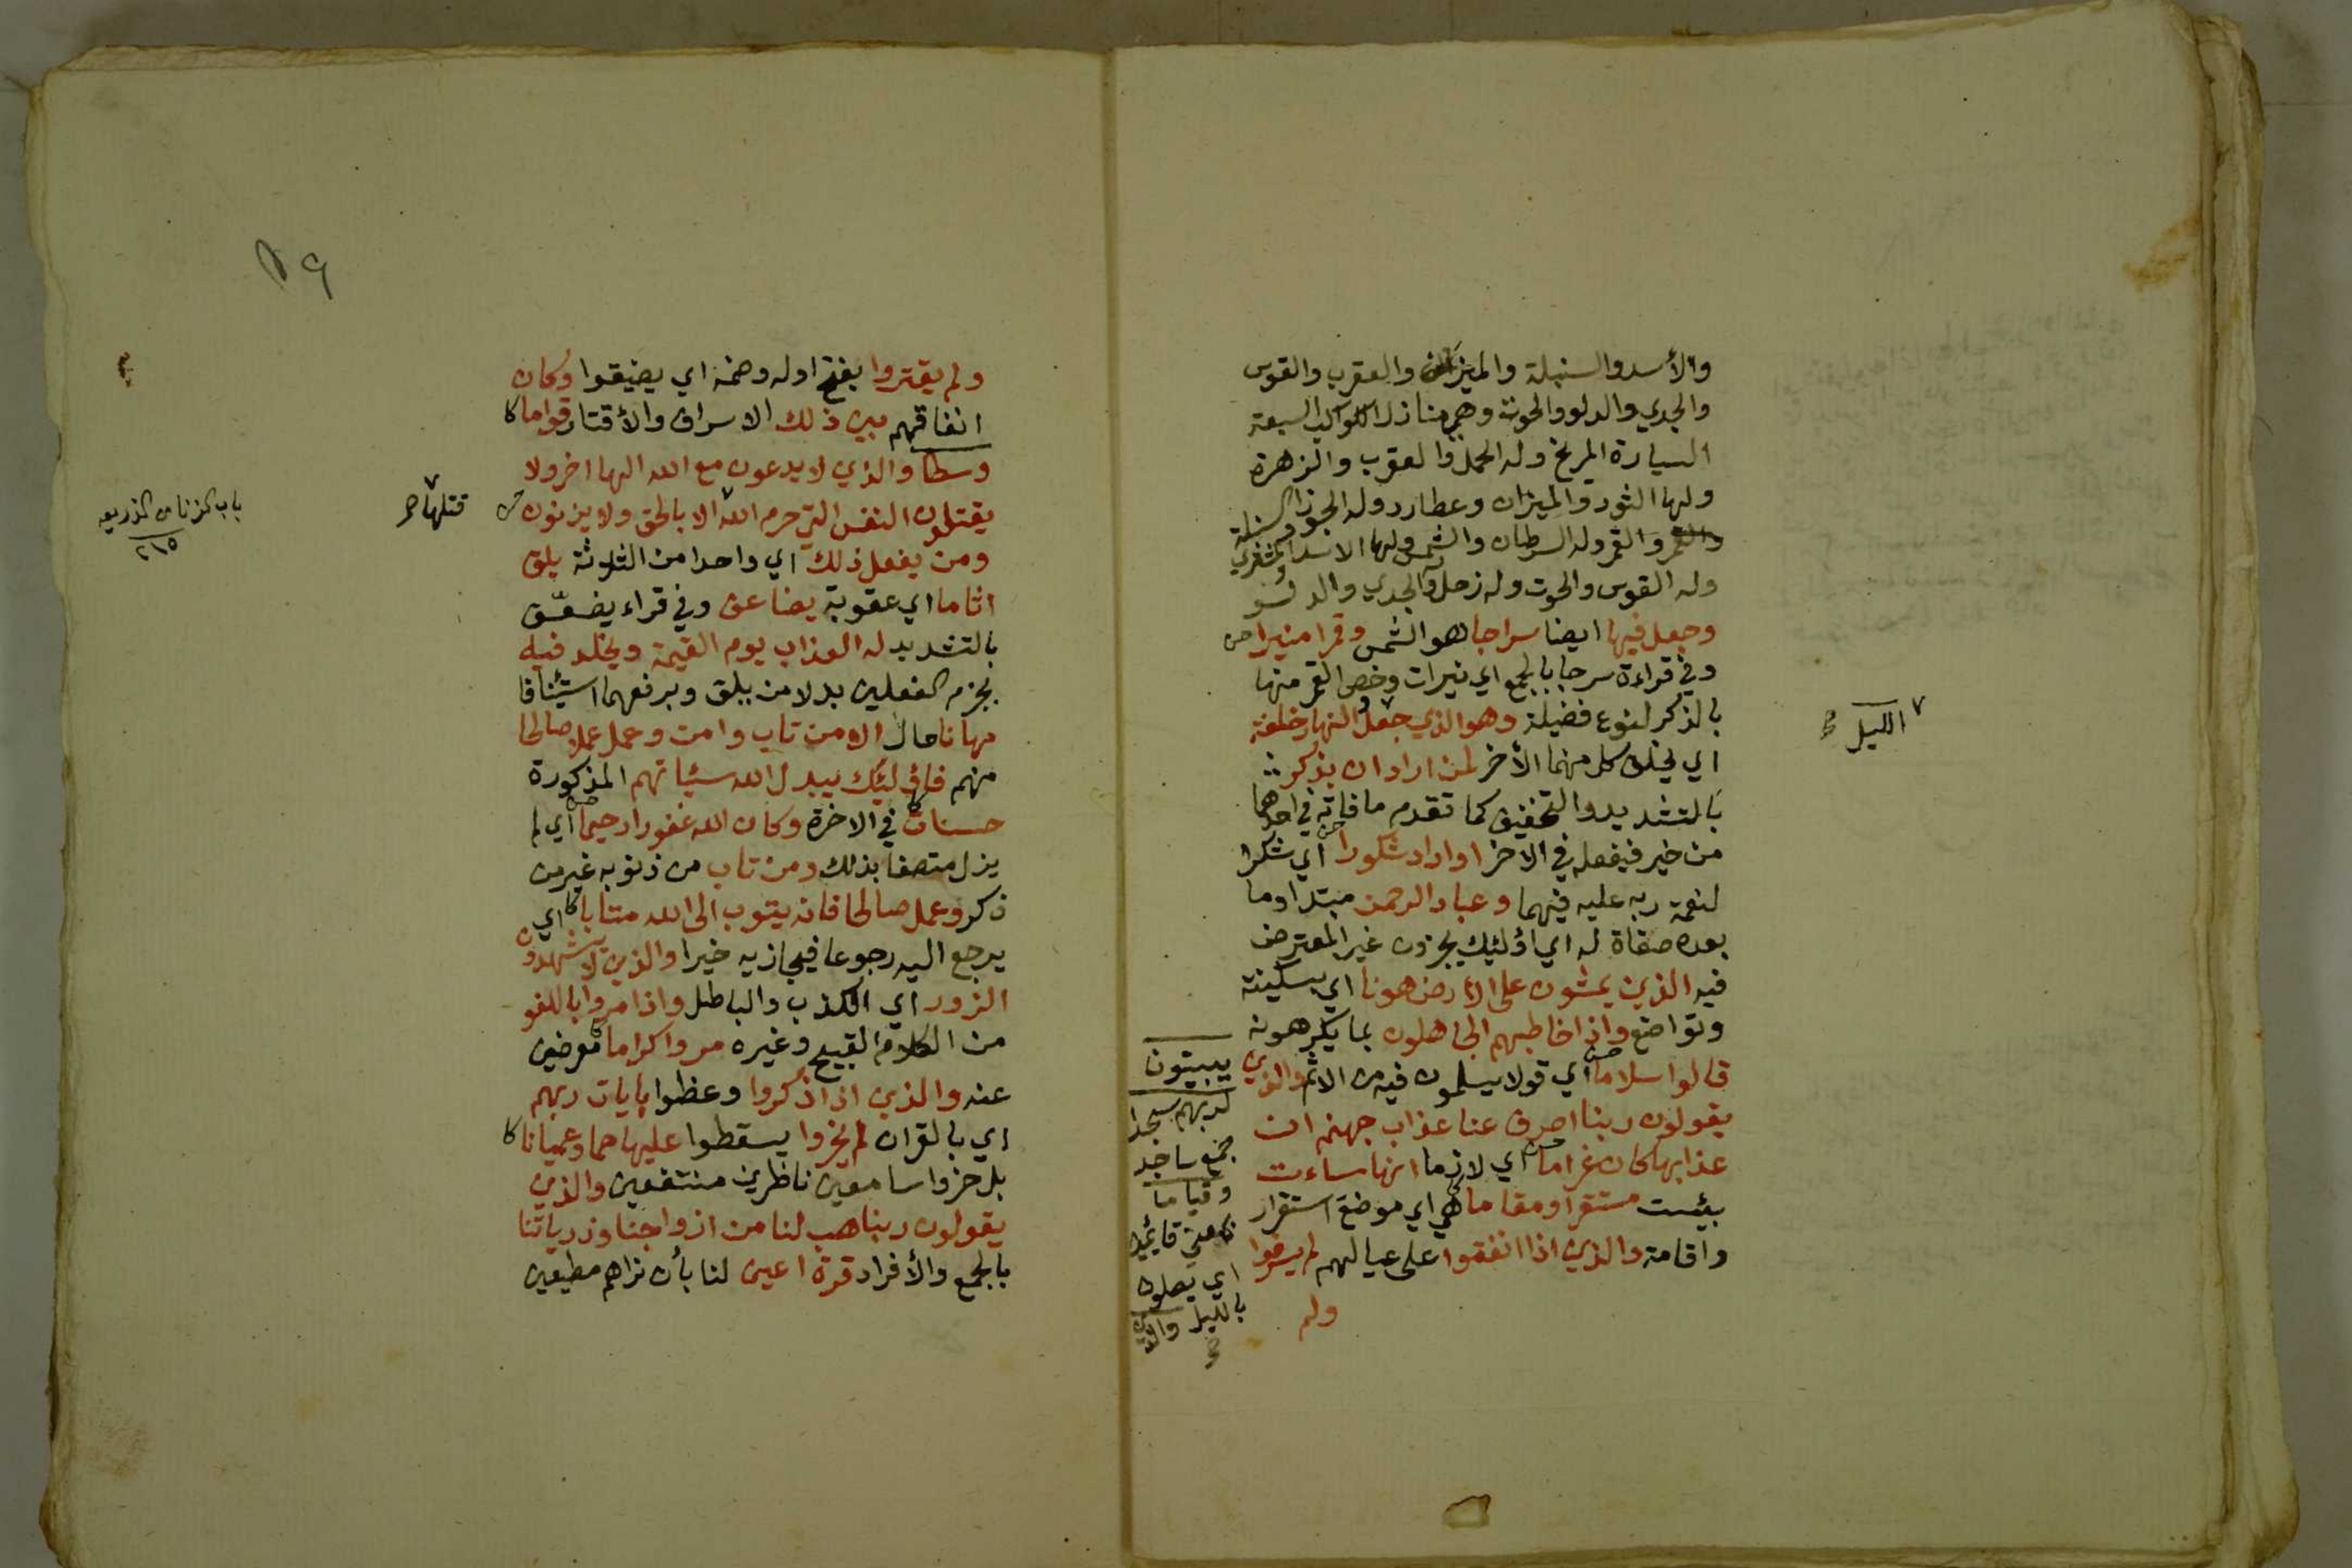 والأسد والسنبلة والميزان والعقرب والقوس
والجدي والدلو والحوت وهي منازل الكواكب السبعة
السيارة المريخ وله الحمل والعقرب والزهرة
ولها الثور والميزان وعطارد وله الجوزا والسنبلة
والقمر وله السرطان والشمس ولها الاسد والمشتري
وله القوس والحوت وله زحل والجدي والدلو
وجعل فيها ايضا سراجا هو الشمس وقمرا منيرا
وفي قراءة سرجا بالجمع اي نيرات وخص القمر منها
بالذكر لنوع فضيلة وهو الذي جعل والنهار خلفة
الليل
اي يخلف كل منهما الأخر لمن اراد ان يذكر
بالتشديد والتخفيف كما تقدم ما فاته في احدهما
من خير فيفعله في الاخر او اراد شكورا اي شكرا
لنعمة ربه عليه فيهما وعباد الرحمن مبتدا وما
بعده صفاة له اي اؤليك يجزون غير المعترض
فيه الذين يمشون على الأرض هونا اي بسكينة
وتواضع واذا خاطبهم الجاهلون بما يكرهونه
قالوا سلاما اي قولا يسلمون فيه من الاثم والذين
يبيتون
لربهم سجدا
جمع ساجد
وقياما
بمعنى قايمين
اي يصلون
بالليل والذين
يقولون ربنا اصرف عنا عذاب جهنم ان
عذابها كان غراما اي لازما انها ساءت
بئست مستقرا ومقاما هي اي موضع استقرار
واقامة والذين اذا انفقوا على عيالهم لم يسرفوا
ولم
١٩
ولم يقتروا بفتح اوله وضمه اي يضيقوا وكان
انفاقهم بين ذلك الاسراف والأقتار قواما
وسطا والذين لا يدعون مع الله الها اخر ولا
يقتلون النفس التي حرم الله الا بالحق ولا يزنون
قتلها
باب الزنا من الذريعه
٢١٥
ومن يفعل ذلك اي واحدا من الثلاثة يلق
اثاما اي عقوبة يضاعف وفي قراء يضعّف
بالتشديد له العذاب يوم القيمة ويخلد فيه
بجزم الفعلين بدلا من يلق وبرفعهما استئنافا
مهانا حال الا من تاب وامن وعمل عملا صالحا
منهم فاؤليك يبدل الله سيئاتهم المذكورة
حسنات في الاخرة وكان الله غفورا رحيما اي لم
يزل متصفا بذلك ومن تاب من ذنوبه غير من
ذكر وعمل صالحا فانه يتوب الى الله متابا اي
يرجع اليه رجوعا فيجازيه خيرا والذين لا يشهدون
الزور اي الكذب والباطل واذا مروا باللغو
من الكلام القبيح وغيره مروا كراما معرضين
عنه والذين اذا ذكروا وعظوا بايات ربهم
اي بالقران لم يخروا يسقطوا عليها صما وعميانا
بل خروا سامعين ناظرين منتفعين والذين
يقولون ربنا هب لنا من ازواجنا وذرياتنا
بالجمع والأفراد قرة اعين لنا بأن نراهم مطيعين